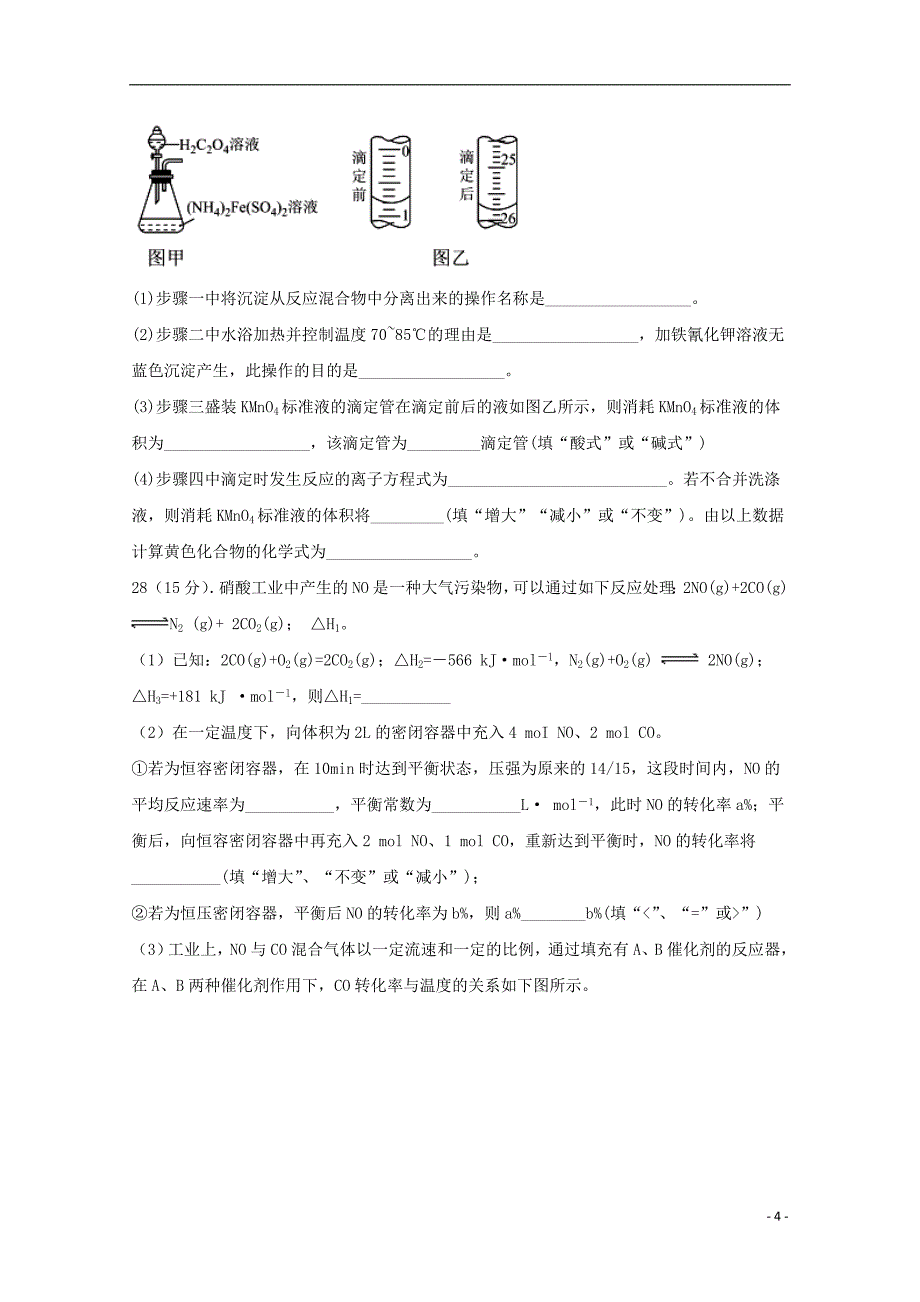 H2C2O4溶液
(NH4)2Fe(SO4)2溶液
图甲
滴定前
0
1
滴定后
25
26
图乙
(1)步骤一中将沉淀从反应混合物中分离出来的操作名称是__________________。
(2)步骤二中水浴加热并控制温度70~85℃的理由是__________________，加铁氰化钾溶液无
蓝色沉淀产生，此操作的目的是__________________。
(3)步骤三盛装KMnO4标准液的滴定管在滴定前后的液如图乙所示，则消耗KMnO4标准液的体
积为__________________，该滴定管为_________滴定管(填“酸式”或“碱式”)
(4)步骤四中滴定时发生反应的离子方程式为___________________________。若不合并洗涤
液，则消耗KMnO4标准液的体积将_________(填“增大”“减小”或“不变”)。由以上数据
计算黄色化合物的化学式为__________________。
28（15分）.硝酸工业中产生的NO是一种大气污染物，可以通过如下反应处理：2NO(g)+2CO(g)
⇌N2 (g)+ 2CO2(g)； △H1。
（1）已知：2CO(g)+O2(g)=2CO2(g)；△H2=－566 kJ·mol－1，N2(g)+O2(g) ⇌ 2NO(g)；
△H3=+181 kJ ·mol－1，则△H1=___________
（2）在一定温度下，向体积为2L的密闭容器中充入4 moI NO、2 mol CO。
①若为恒容密闭容器，在10min时达到平衡状态，压强为原来的14/15，这段时间内，NO的
平均反应速率为___________，平衡常数为___________L· mol－1，此时NO的转化率a%；平
衡后，向恒容密闭容器中再充入2 mol NO、1 mol CO，重新达到平衡时，NO的转化率将
___________(填“增大”、“不变”或“减小”)；
②若为恒压密闭容器，平衡后NO的转化率为b%，则a%________b%(填“<”、“=”或>”)
（3）工业上，NO与CO混合气体以一定流速和一定的比例，通过填充有A、B催化剂的反应器，
在A、B两种催化剂作用下，CO转化率与温度的关系如下图所示。
- 4 -